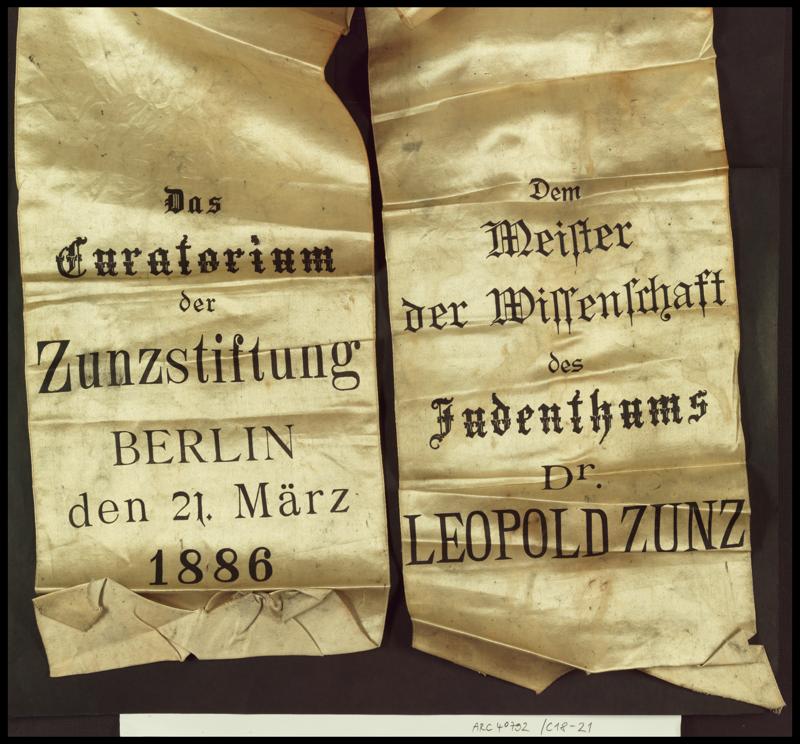 Das
Curatorium
der
Zunzstiftung
BERLIN
den 21. März
1886
Dem
Meiſter
der Wiſſenſchaft
des
Judenthums
Dr.
LEOPOLD ZUNZ
ARC 4° 792 /C18-21